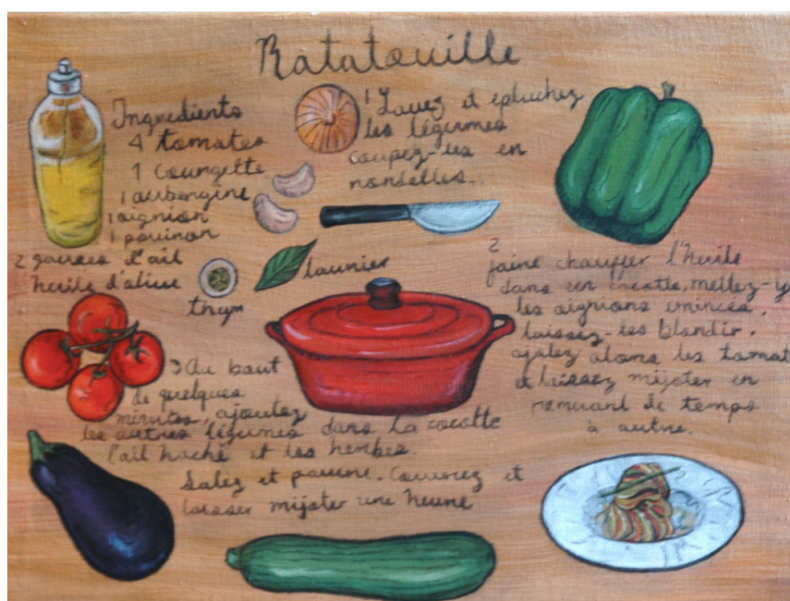 Ratatouille
Ingredients
4 tomates
1 courgette
1 aubergine
1 oignion
1 poivron
2 gousses d'ail
huile d'olive
thym
laurier
1 Lavez et épluchez
les légumes
coupez-les en
rondelles...
2
faire chauffer l'huile
dans un cocotte, mettez-y
les oignions émincés,
laissez-les blondir.
ajoutez alors les tomat
et laissez mijoter en
remuant de temps
à autre.
3 Au bout
de quelques
minutes, ajoutez
les autres légumes dans la cocotte
l'ail haché et les herbes.
Salez et poivre. Couvrez et
laisser mijoter une heure